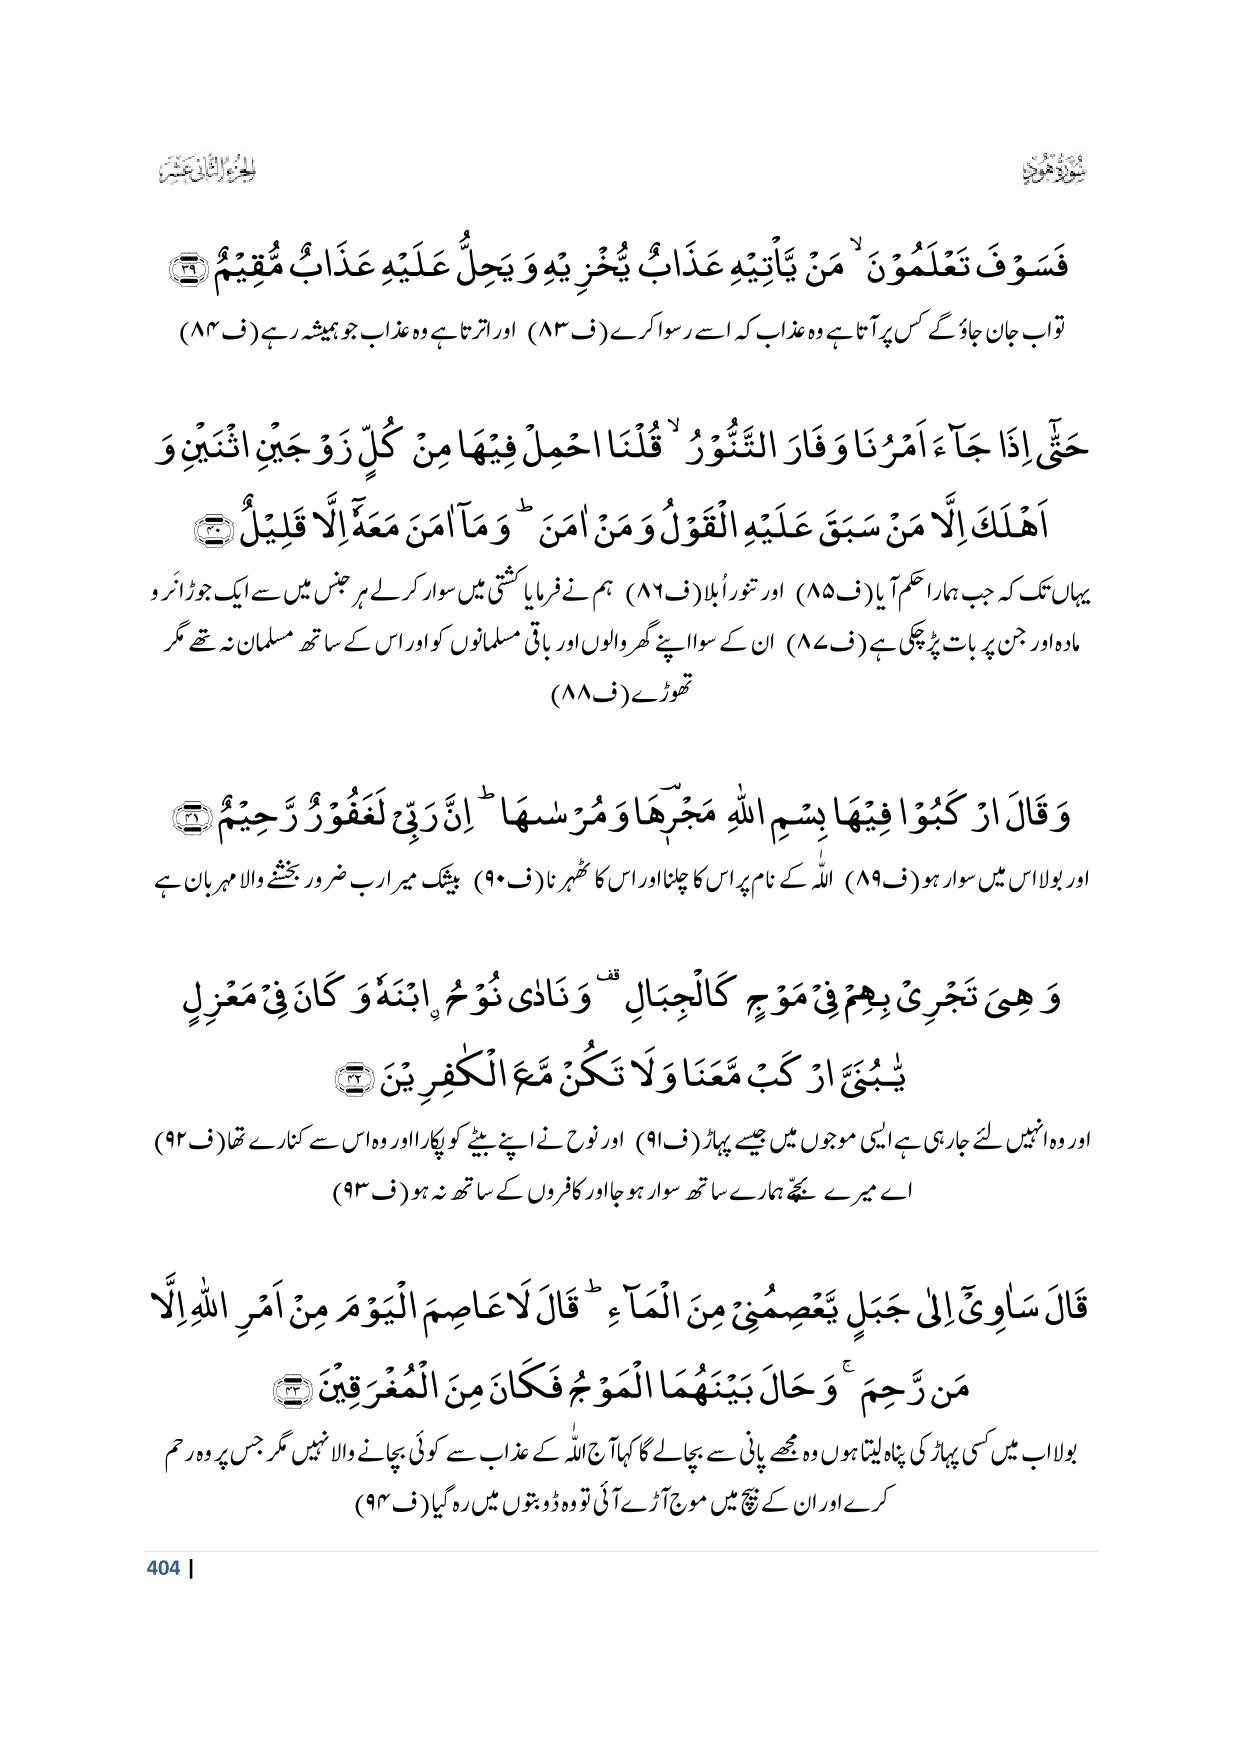 سُوْرَةُ هُوْدٍ
الجزء الثانی عشر
فَسَوْفَ تَعْلَمُوْنَ ۙ مَنْ يَّاْتِيْهِ عَذَابٌ يُّخْزِيْهِ وَ يَحِلُّ عَلَيْهِ عَذَابٌ مُّقِيْمٌ ﴿۳۹﴾
تو اب جان جاؤ گے کس پر آتا ہے وہ عذاب کہ اسے رسوا کرے (ف۸۳) اور اترتا ہے وہ عذاب جو ہمیشہ رہے (ف۸۴)
حَتّٰۤى اِذَا جَآءَ اَمْرُنَا وَ فَارَ التَّنُّوْرُ ۙ قُلْنَا احْمِلْ فِيْهَا مِنْ كُلٍّ زَوْجَيْنِ اثْنَيْنِ وَ
اَهْلَكَ اِلَّا مَنْ سَبَقَ عَلَيْهِ الْقَوْلُ وَ مَنْ اٰمَنَ ؕ وَ مَاۤ اٰمَنَ مَعَهٗۤ اِلَّا قَلِيْلٌ ﴿۴۰﴾
یہاں تک کہ جب ہمارا حکم آیا (ف۸۵) اور تنور اُبلا (ف۸۶) ہم نے فرمایا کشتی میں سوار کر لے ہر جنس میں سے ایک جوڑا نَر و
مادہ اور جن پر بات پڑ چکی ہے (ف۸۷) ان کے سوا اپنے گھر والوں اور باقی مسلمانوں کو اور اس کے ساتھ مسلمان نہ تھے مگر
تھوڑے (ف۸۸)
وَ قَالَ ارْكَبُوْا فِيْهَا بِسْمِ اللّٰهِ مَجْرٖىهَا وَ مُرْسٰىهَا ؕ اِنَّ رَبِّيْ لَغَفُوْرٌ رَّحِيْمٌ ﴿۴۱﴾
اور بولا اس میں سوار ہو (ف۸۹) اللّٰہ کے نام پر اس کا چلنا اور اس کا ٹھہرنا (ف۹۰) بیشک میرا رب ضرور بخشنے والا مہربان ہے
وَ هِيَ تَجْرِيْ بِهِمْ فِيْ مَوْجٍ كَالْجِبَالِ ۟ وَ نَادٰى نُوْحُ ۨ ابْنَهٗ وَ كَانَ فِيْ مَعْزِلٍ
يّٰبُنَيَّ ارْكَبْ مَّعَنَا وَ لَا تَكُنْ مَّعَ الْكٰفِرِيْنَ ﴿۴۲﴾
اور وہ انہیں لئے جارہی ہے ایسی موجوں میں جیسے پہاڑ (ف۹۱) اور نوح نے اپنے بیٹے کو پکارا اور وہ اس سے کنارے تھا (ف۹۲)
اے میرے بچّے ہمارے ساتھ سوار ہوجا اور کافروں کے ساتھ نہ ہو (ف۹۳)
قَالَ سَاٰوِيْۤ اِلٰى جَبَلٍ يَّعْصِمُنِيْ مِنَ الْمَآءِ ؕ قَالَ لَا عَاصِمَ الْيَوْمَ مِنْ اَمْرِ اللّٰهِ اِلَّا
مَنْ رَّحِمَ ۚ وَ حَالَ بَيْنَهُمَا الْمَوْجُ فَكَانَ مِنَ الْمُغْرَقِيْنَ ﴿۴۳﴾
بولا اب میں کسی پہاڑ کی پناہ لیتا ہوں وہ مجھے پانی سے بچالے گا کہا آج اللّٰہ کے عذاب سے کوئی بچانے والا نہیں مگر جس پر وہ رحم
کرے اور ان کے بیچ میں موج آڑے آئی تو وہ ڈوبتوں میں رہ گیا (ف۹۴)
404 |